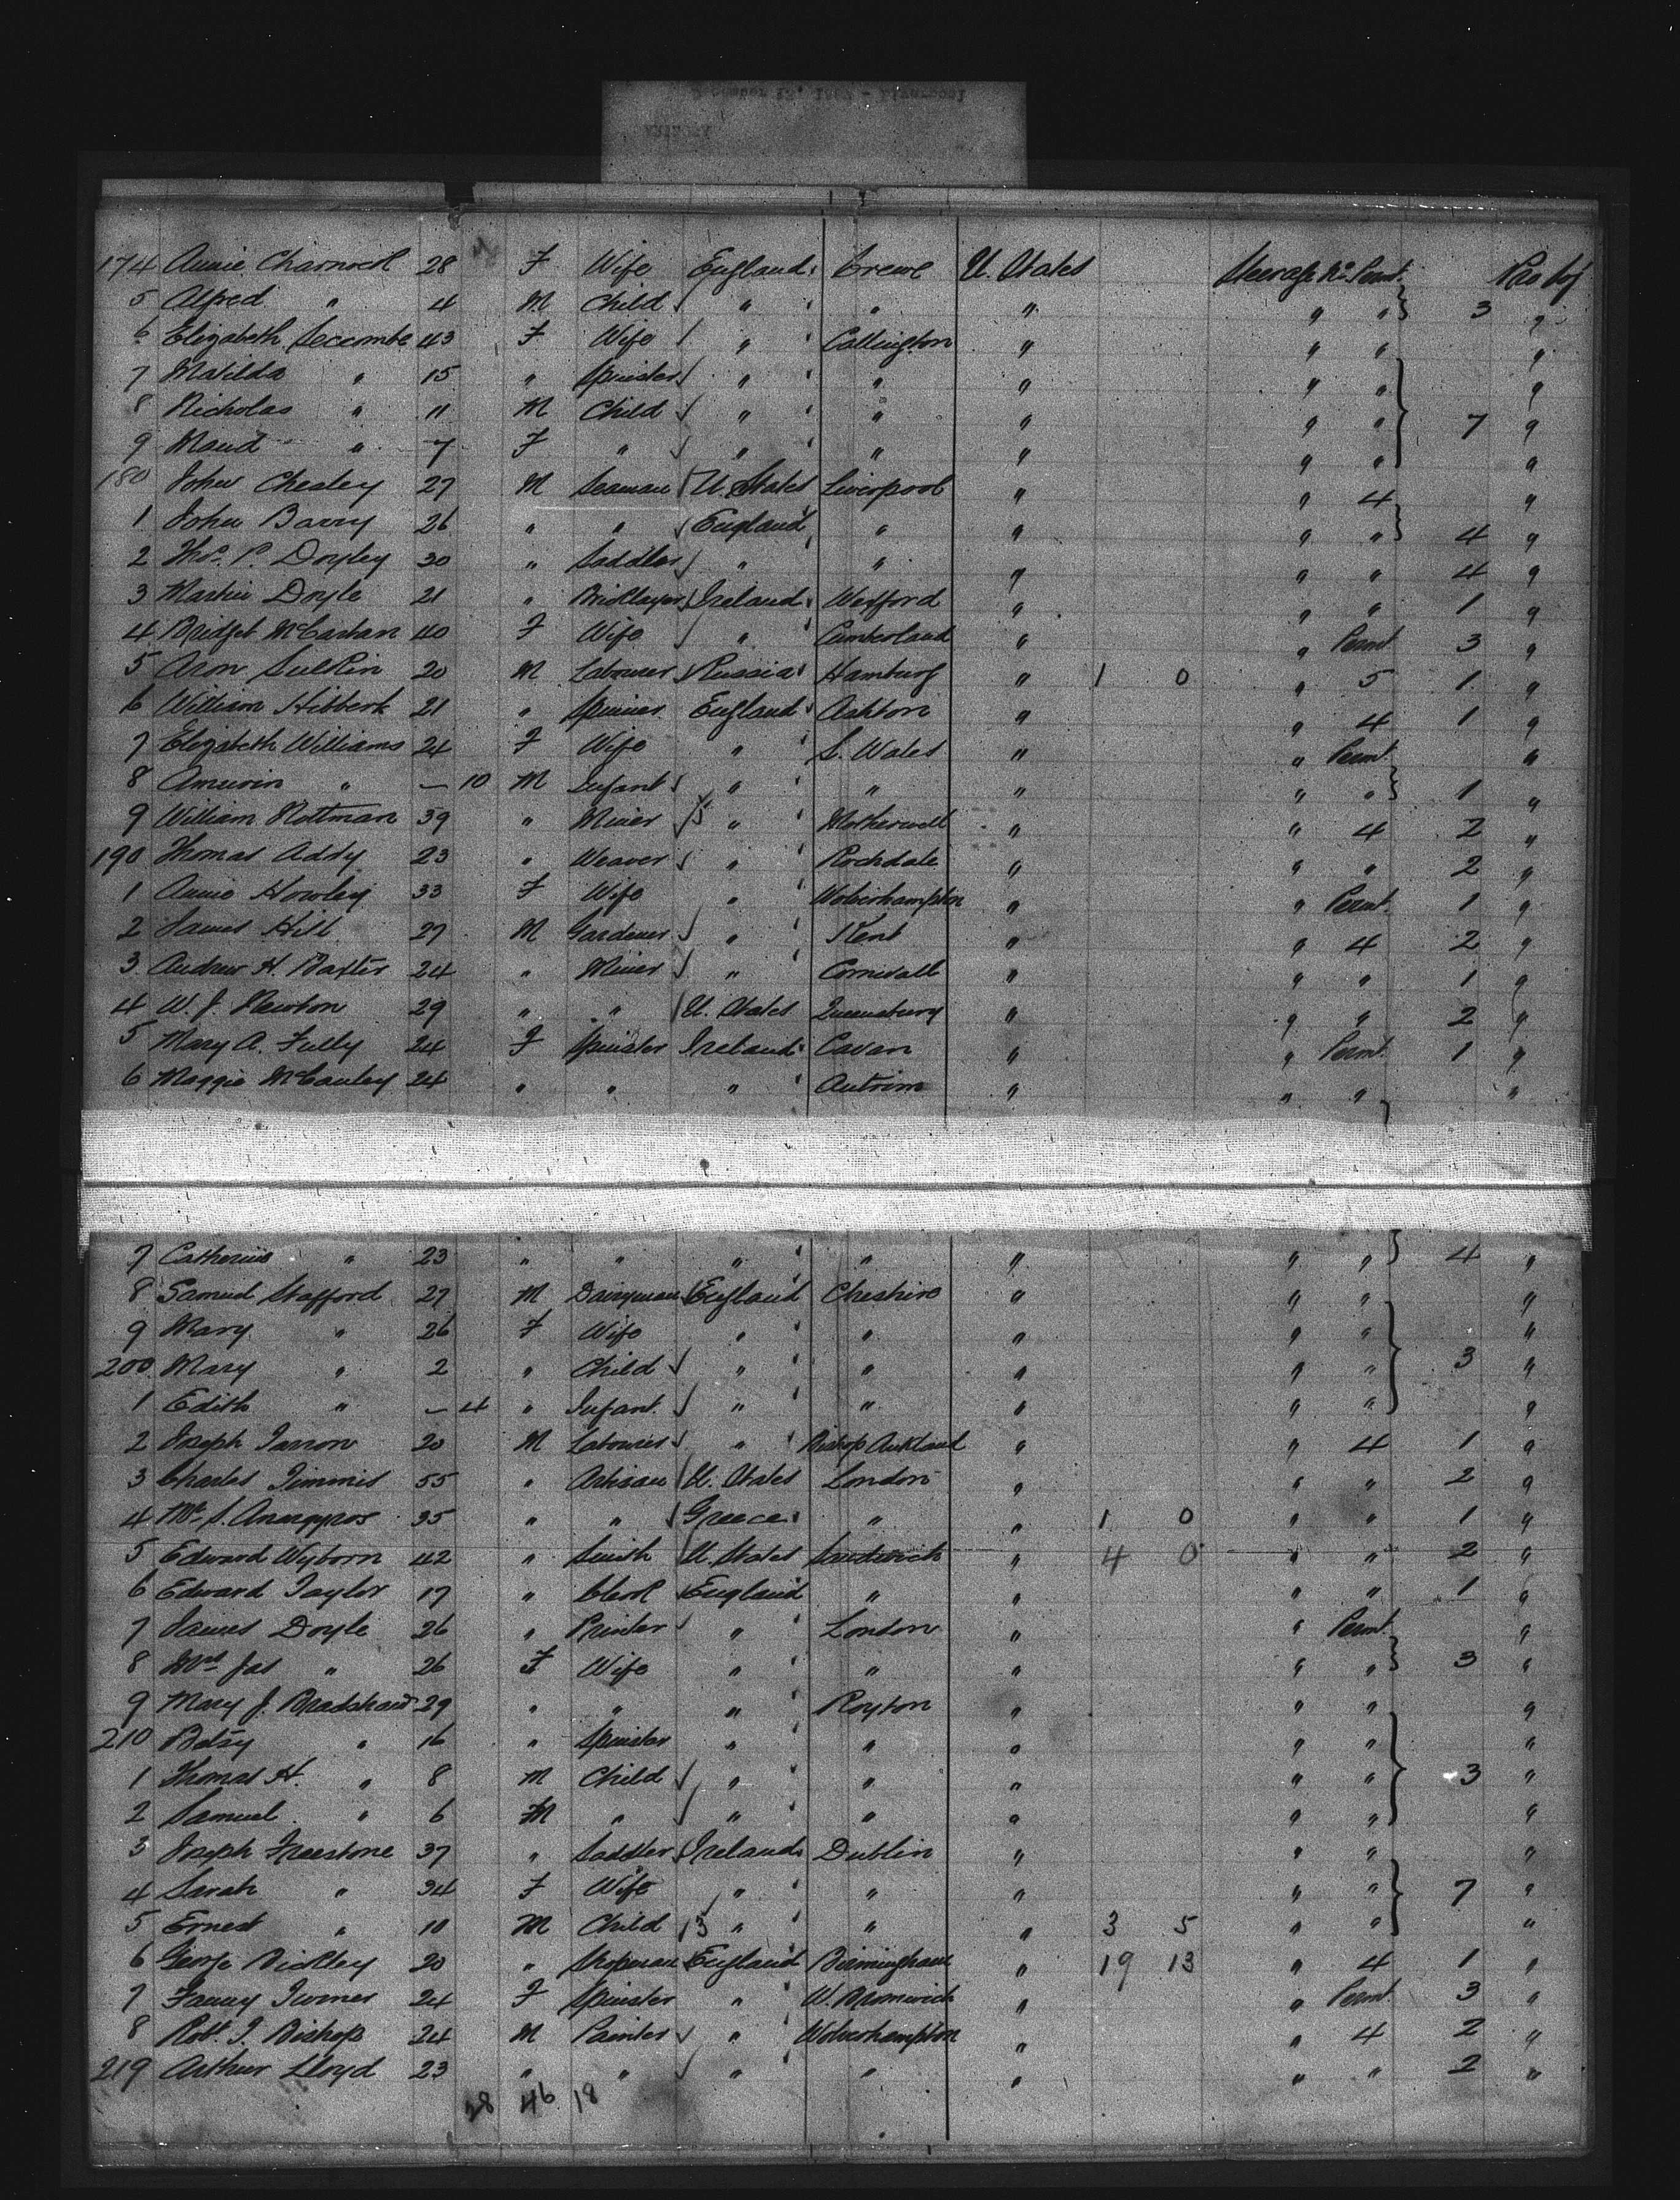 174 Annie Charnock 28 F Wife England Crewe U. States Steerage No. Permt. Pro tof
5 Alfred " 4 M Child " " " " " 3 "
6 Elizabeth Seccombe 43 F Wife " Callington " " " "
7 Matilda " 15 " Spinster " " " " " "
8 Nicholas " 11 M Child " " " " " 7 "
9 Maud " 7 F " " " " " " "
180 John Chesley 27 M Seaman U. States Liverpool " " 4 "
1 John Barry 26 " " England " " " " 4 "
2 Thos. P. Doyley 30 " Saddler " " " " " 4 "
3 Martin Doyle 21 " Bricklayer Ireland Wexford " " " 1 "
4 Bridget McCartan 40 F Wife " Cumberland " " Permt. 3 "
5 Aron Sulkin 20 M Labourer Russia Hamburg " 1 0 " 5 1 "
6 William Hibbert 21 " Spinner England Ashton " " 4 1 "
7 Elizabeth Williams 24 F Wife " S. Wales " " Permt. "
8 Aneurin " — 10 M Infant " " " " " 1 "
9 William Nottman 39 " Miner " Motherwell " " 4 2 "
190 Thomas Addy 23 " Weaver " Rochdale " " " 2 "
1 Annie Howley 33 F Wife " Wolverhampton " " Permt. 1 "
2 James Hill 27 M Gardener " Kent " " 4 2 "
3 Andrew H. Baxter 24 " Miner " Cornwall " " " 1 "
4 W. J. Newton 29 " " U. States Queensbury " " " 2 "
5 Mary A. Fully 24 F Spinster Ireland Cavan " " Permt. 1 "
6 Maggie McCauley 24 " " " Antrim " " " "
7 Catherine " 23 " " " " " " " 4 "
8 Samuel Stafford 27 M Dairyman England Cheshire " " " "
9 Mary " 26 F Wife " " " " " "
200 Mary " 2 " Child " " " " " 3 "
1 Edith " — 4 " Infant " " " " " "
2 Joseph Iarron 20 M Labourer " Bishop Aukland " " 4 1 "
3 Charles Timmis 55 " Artisan U. States London " " " 2 "
4 Mr. S. Anargyros 35 " " Greece " " 1 0 " " 1 "
5 Edward Wyborn 42 " Smith U. States Sandwich " 4 0 " " 2 "
6 Edward Taylor 17 " Clerk England " " " " 1 "
7 James Doyle 26 " Printer " London " " Permt. "
8 Mrs. Jas " 26 F Wife " " " " " 3 "
9 Mary J. Bradshaw 29 " " " Royton " " " "
210 Betsy " 16 " Spinster " " " " " "
1 Thomas H. " 8 M Child " " " " " 3 "
2 Samuel " 6 M " " " " " " "
3 Joseph Freestone 37 " Saddler Ireland Dublin " " " "
4 Sarah " 34 F Wife " " " " " 7 "
5 Ernest " 10 M Child " " " 3 5 " " "
6 George Bickley 20 " Shopman England Birmingham " 19 13 " 4 1 "
7 Fanny Turner 24 F Spinster " W. Bromwich " " Permt. 3 "
8 Robt. T. Bishop 24 M Painter " Wolverhampton " " 4 2 "
219 Arthur Lloyd 23 " " " " " " " 2 "
28 46 18